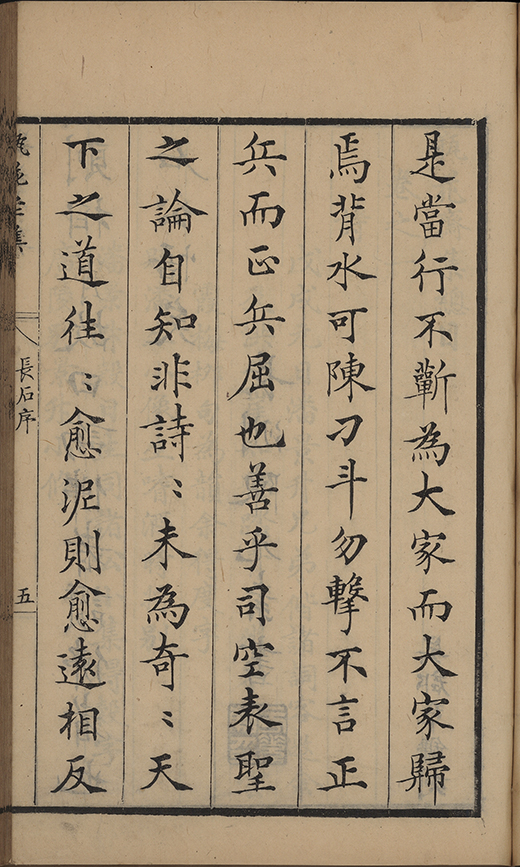 是當行不蘄為大家而大家歸
焉背水可陳刁斗勿擊不言正
兵而正兵屈也善乎司空表聖
之論自知非詩〻未為奇〻天
下之道往〻愈泥則愈遠相反
長石序
五